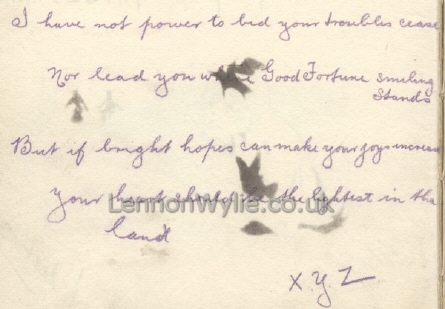 I have not power to bid your troubles cease
Nor lead you where Good Fortune smiling
Stands
But if bright hopes can make your joys increase
Your heart should be the lightest in the
land
LennonWylie.co.uk
X.Y.Z.